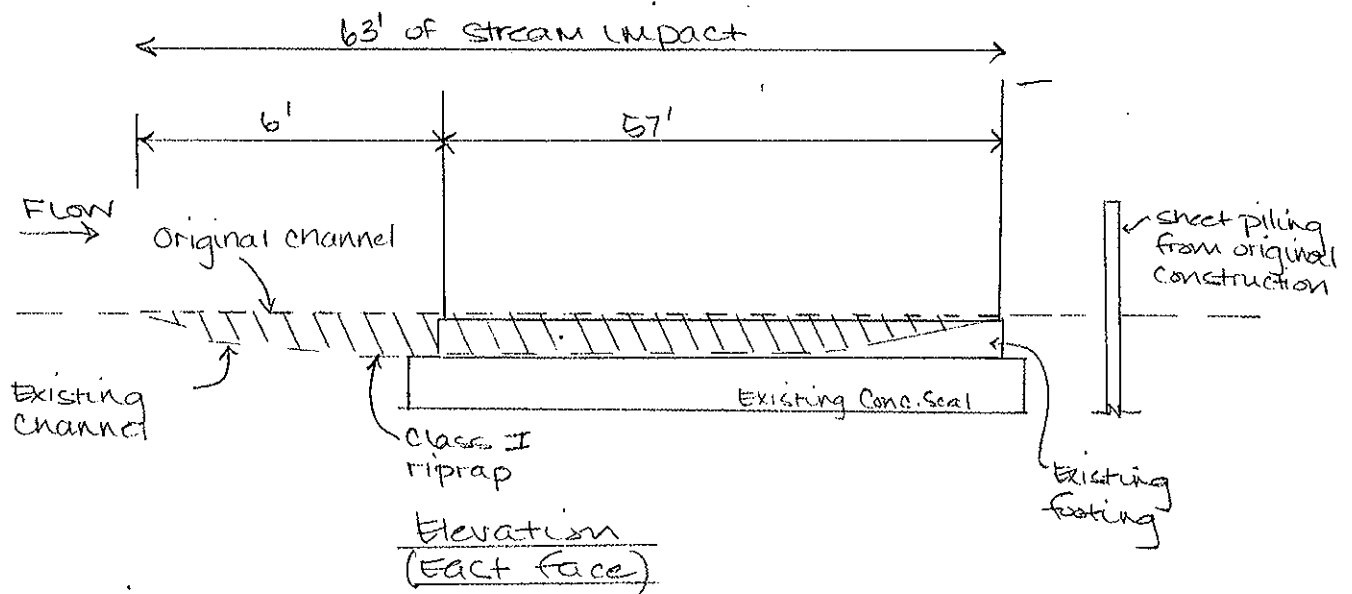 63' of stream impact
6'
57'
FLOW
Original channel
sheet piling
from original
construction
Existing
channel
Existing Conc. Seal
Class I
riprap
Existing
footing
Elevation
(East face)